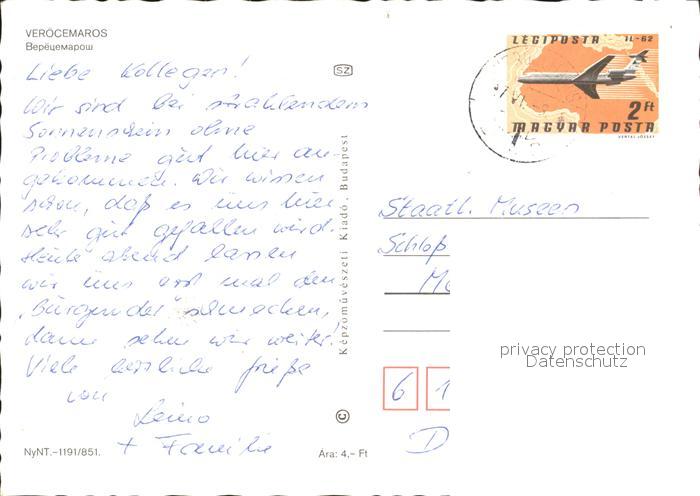 VERŐCEMAROS
Верёцемарош
Liebe Kollegen!
Wir sind bei strahlendem
Sonnenschein ohne
Probleme gut hier an-
gekommen. Wir wissen
schon, daß es uns hier
sehr gut gefallen wird.
Heute abend lassen
wir uns erst mal den
"Burgunder" schmecken,
dann sehen wir weiter!
Viele herzliche Grüße
von
+ Familie
NyNT.–1191/851.
Ára: 4,– Ft
SZ
Képzőművészeti Kiadó, Budapest
©
LÉGIPOSTA IL-62
2 Ft
MAGYAR POSTA
VERTEL JÓZSEF
Staatl. Museen
Schloß
6 1
D
privacy protection
Datenschutz